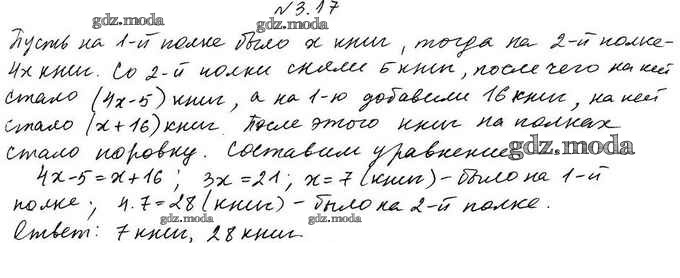 №3.17
gdz.moda gdz.moda
Пусть на 1-й полке было x книг, тогда на 2-й полке-
4x книг. Со 2-й полки сняли 5 книг, после чего на ней
стало (4x-5) книг, а на 1-ю добавили 16 книг, на ней
стало (x+16) книг. После этого книг на полках
gdz.moda
стало поровну. Составим уравнение gdz.moda
4x-5=x+16; 3x=21; x=7 (книг) - было на 1-й
полке; 4·7=28 (книг) - было на 2-й полке.
gdz.moda gdz.moda
Ответ: 7 книг, 28 книг.